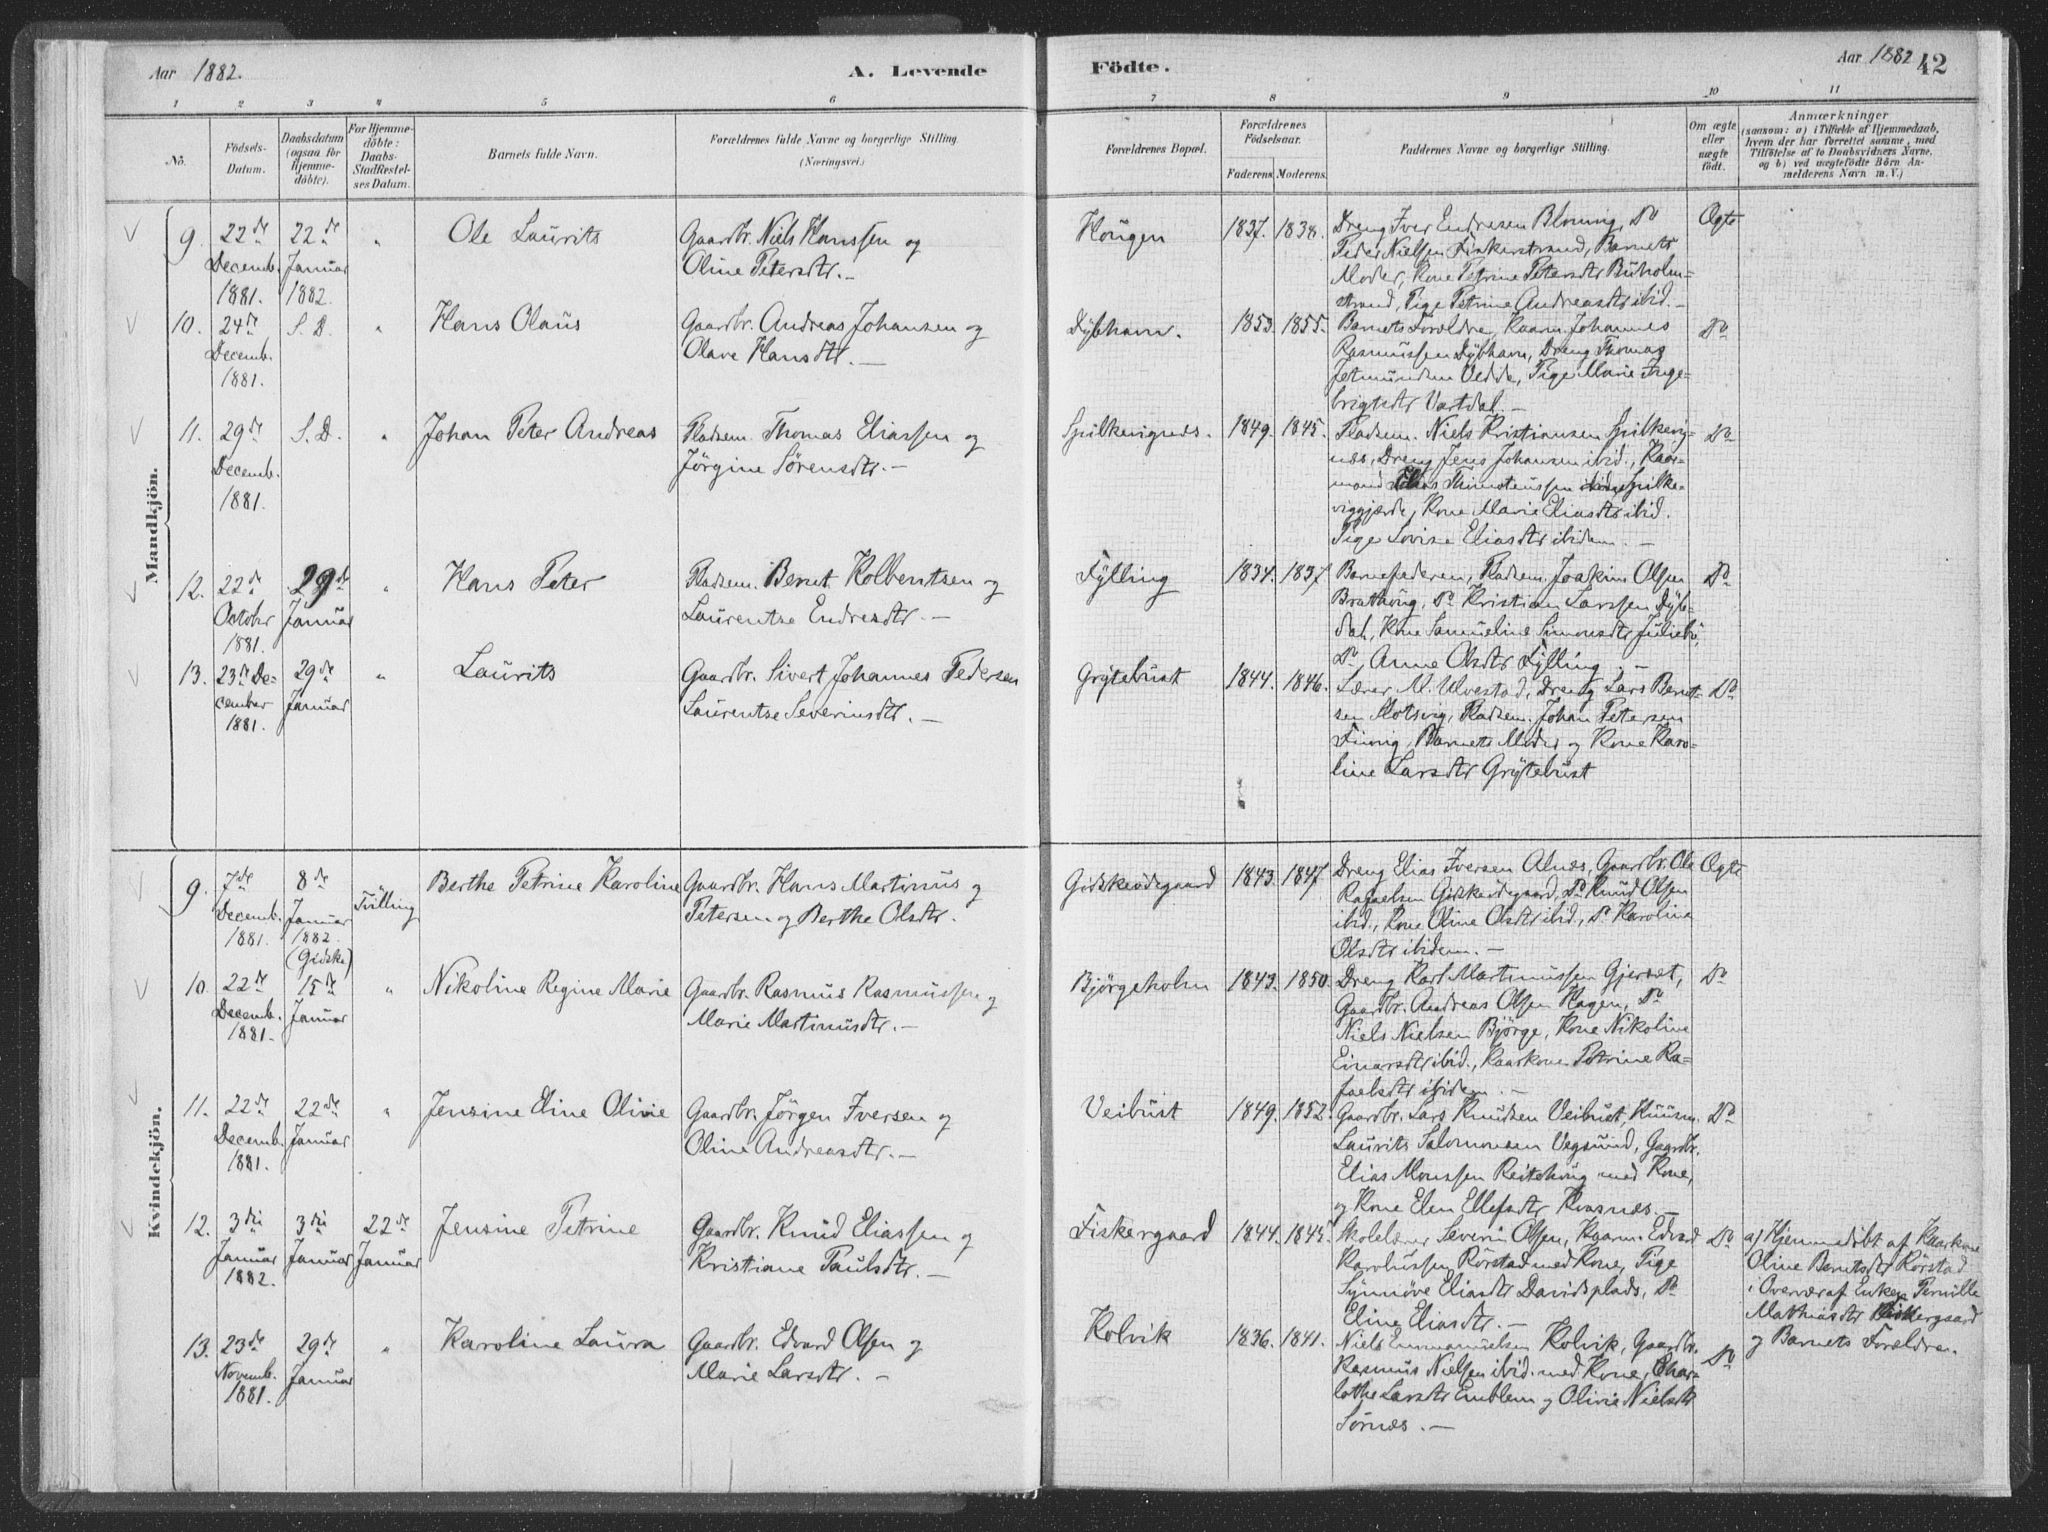 Aar 1882.
A. Levende
Födte.
Aar 1882
42
1 2 3 4 5 6 7 8 9 10 11
No.
Födsels-
Datum.
Daabsdatum
(ogsaa for
Hjemme-
döbte).
For Hjemme-
döbte:
Daabs-
Stadfæstel-
ses Datum.
Barnets fulde Navn.
Forældrenes fulde Navne og borgerlige Stilling
(Næringsvei.)
Forældrenes Bopæl.
Forældrenes
Födselsaar.
Faderens. Moderens.
Faddernes Navne og borgerlige Stilling.
Om ægte
eller
uægte
födt.
Anmærkninger
(saasom: a) i Tilfælde af Hjemmedaab,
hvem der har forrettet samme, med
Tilföielse af to Daabsvidners Navne,
og b) ved uægtefödte Börn An-
melderens Navn m. V.)
Mandkjön.
9. 22de Decemb. 1881.
22de Januar 1882.
"
Ole Laurits
Gaardbr. Niels Hanssen og
Oline Petersdtr. —
Hougen
1837. 1838.
Dreng Iver Endresen Blomvig, Do
Peder Nielsen Fiskerstrand, Barnets
Moder, Kone Petrine Petersdtr Buholm-
strand, Pige Petrine Andreasdtr ibid. —
Ægte
10. 24de Decemb. 1881.
S. D.
"
Hans Olaus
Gaardbr. Andreas Johansen og
Olave Hansdtr. —
Dybhavn.
1853. 1855.
Barnets Forældre, Kaarm. Johannes
Rasmussen Dybhavn, Dreng Thomas
Jetmundsen Vedde, Pige Marie Inge-
brigtsdtr Vartdal. —
Do
11. 29de Decemb. 1881.
S. D.
"
Johan Peter Andreas
Pladsem. Thomas Eliassen og
Jörgine Sörensdtr. —
Spilkevignes.
1849. 1845.
Pladsem. Niels Kristiansen Spilkevig-
næs, Dreng Jens Johansen ibid., Kaar-
mand Elias Thimoteussen Spilke-
viggjærde, Kone Marie Eliasdtr ibid.
Pige Lovise Eliasdtr ibidem. —
Do
12. 22de October 1881.
29de Januar
"
Hans Peter
Pladsem. Bernt Kolbentsen og
Laurentse Endresdtr. —
Fylling
1834. 1837.
Barnefaderen, Pladsem. Joakim Olsen
Brathoug, Do Kristian Larssen Dyb-
dal, Kone Samueline Simonsdtr Juliebö,
Do Anne Olsdtr Fylling. —
Do
13. 23de De-
cember 1881.
29de Januar
"
Laurits
Gaardbr. Sivert Johannes Pedersen
Laurentse Severinsdtr. —
Grytebust
1844. 1846.
Lærer M. Ulvestad, Dreng Lars Bernt-
sen Slotsvig, Pladsem. Johan Petersen
Barnets Moder og Kone Karo-
line Larsdtr Grytebust
Do
Kvindekjön.
9. 7de Decemb. 1881.
8de Januar 1882. (Gidske)
Tvilling
Berthe Petrine Karoline
Gaardbr. Hans Martinus
Petersen og Berthe Olsdtr.
Gidskeödegaard
1843. 1847
Dreng Elias Iversen Alnæs, Gaardbr. Ole
Rafaelsen Gidskeödegaard, Do Knud Olsen
ibid., Kone Oline Olsdtr ibid., Do Karoline
Olsdtr ibidem. —
Ægte
10. 22de Decemb. 1881.
15de Januar
"
Nikoline Regine Marie
Gaardbr. Rasmus Rasmussen og
Marie Martinusdtr. —
Björgeholm
1843. 1850.
Dreng Karl Martinussen Gjerset,
Gaardbr. Andreas Olsen Hagen, Do
Niels Nielsen Björge, Kone Nikoline
Einarsdtr ibid., Kaarkone Petrine Ra-
faelsdtr ibidem. —
Do
11. 22de Decemb. 1881.
22de Januar
"
Jensine Eline Olivie
Gaardbr. Jörgen Iversen og
Oline Andreasdtr. —
Veibust
1849. 1852.
Gaardbr. Lars Knudsen Veibust, Huusm.
Laurits Salomonsen Vegsund, Gaardbr.
Elias Monssen Reitehoug med Kone,
og Kone Elen Ellefsdtr Kvasnæs. —
Do
12. 3die Januar 1882.
3die Januar
22de Januar
Jensine Petrine
Gaardbr. Knud Eliassen og
Kristiane Paulsdtr. —
Fiskergaard
1844. 1845.
Skolelærer Severin Olsen, Kaarm. Edvard
Karolussen Rörstad med Kone, Pige
Synnöve Eliasdtr Davidsplads, Do
Eline Eliasdtr. —
Do
a) Hjemmedöbt af Kaarkone
Oline Berntsdtr Rörstad
i Overvær af Enken Pernille
Mathiasdtr Fiskergaard
og Barnets Forældre.
13. 23de Novemb. 1881.
29de Januar
"
Karoline Laura
Gaardbr. Edvard Olsen og
Marie Larsdtr. —
Kolvik
1836. 1841.
Niels Emmanuelsen Kolvik, Gaardbr.
Rasmus Nielsen ibid. med Kone, Char-
lothe Larsdtr Emblem og Olivie Nielsdtr
Sörnæs. —
Do